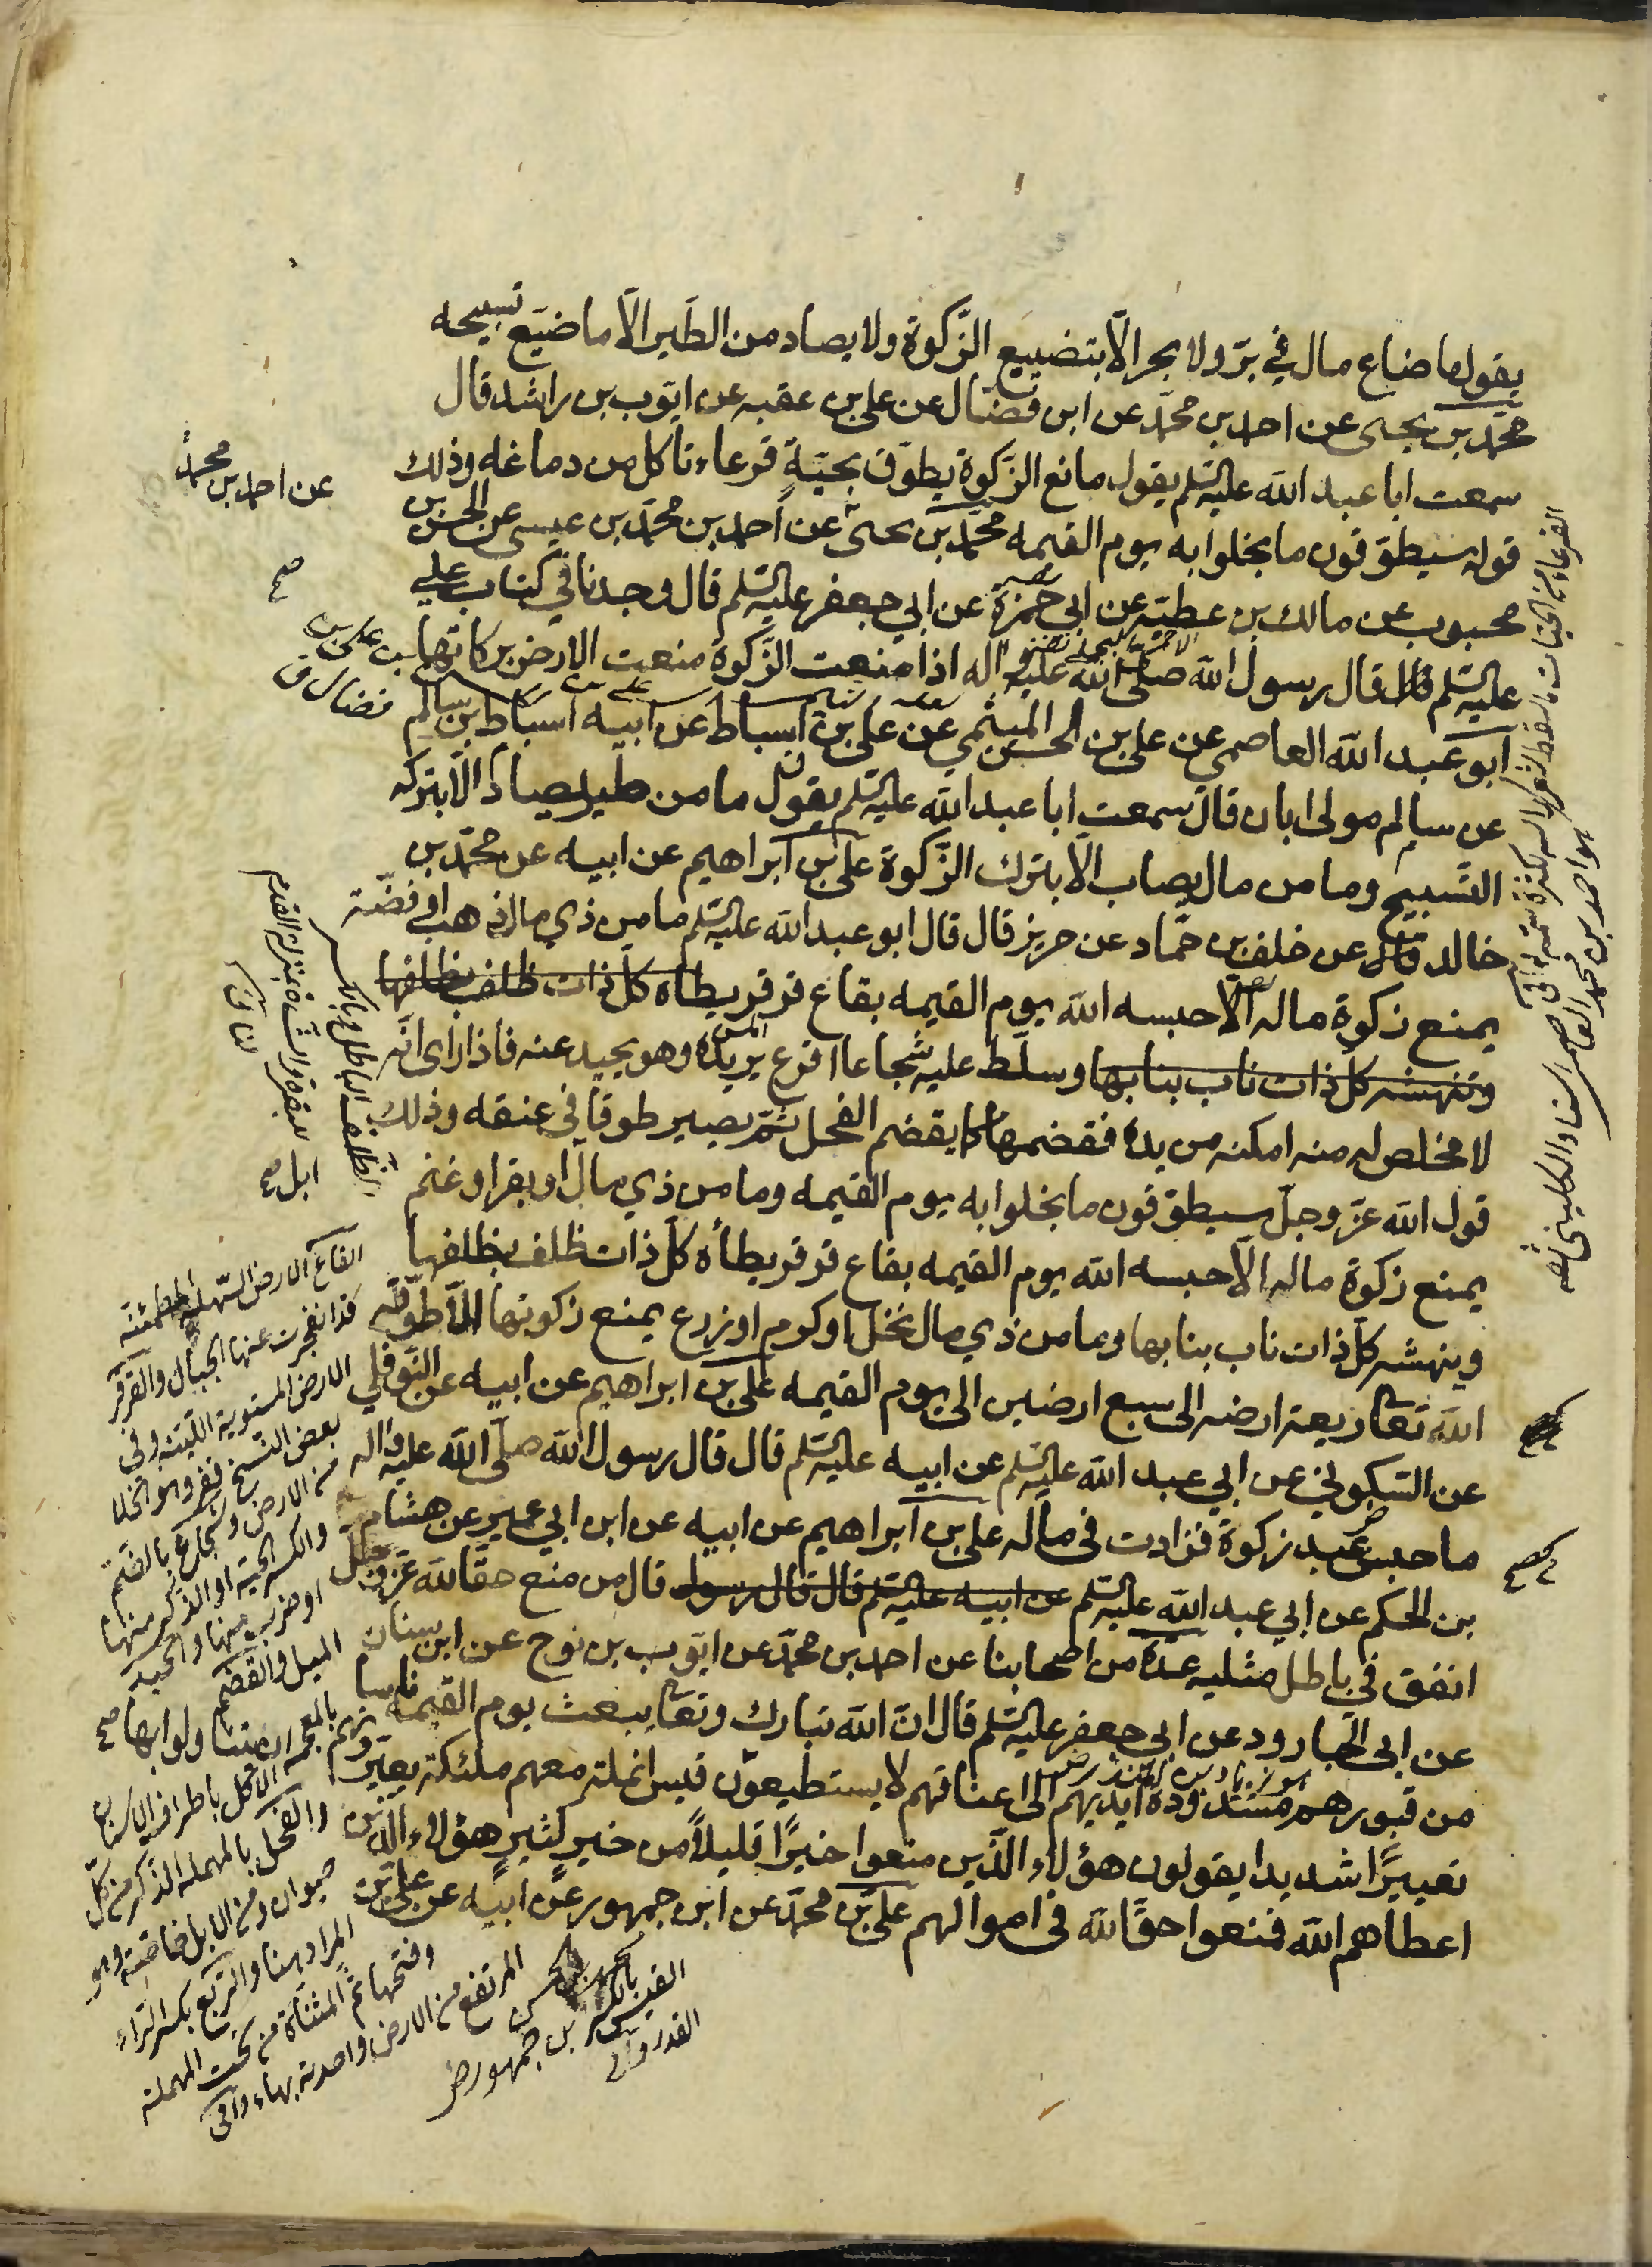 يقول ما ضاع مال في برّ ولا بحر الّا بتضييع الزّكوة ولا يصاد من الطّير الّا ما ضيّع تسبيحه
محمّد بن يحيى عن احمد بن محمّد عن ابن فضّال عن علي بن عقبه عن ايّوب بن راشد قال
سمعت ابا عبد الله عليه السّلم يقول مانع الزّكوة يطوّق بحيّة قرعاء تأكل من دماغه وذلك
قوله سيطوّقون ما بخلوا به يوم القيمه محمّد بن يحيى عن احمد بن محمّد بن عيسى عن الحسن بن
محبوب عن مالك بن عطيّه عن ابي حمزة عن ابي جعفر عليه السّلم قال وجدنا في كتاب علي
عليه السّلم قال قال رسول الله صلّى الله عليه واله اذا منعت الزّكوة منعت الارض بركاتها
ابو عبد الله العاصمي عن علي بن الحسن الميثمي عن علي بن اسباط عن ابيه اسباط بن سالم
عن سالم مولى ابان قال سمعت ابا عبد الله عليه السّلم يقول ما من طير يصاد الّا بتركه
التّسبيح وما من مال يصاب الّا بترك الزّكوة علي بن ابراهيم عن ابيه عن محمّد بن
خالد قال عن خلف بن حمّاد عن حريز قال قال ابو عبد الله عليه السّلم ما من ذي مال ذهب او فضّة
يمنع زكوة ماله الّا حبسه الله يوم القيمه بقاع قرقر يطأه كلّ ذات ظلف بظلفها
وتنهشه كل ذات ناب بنابها وسلّط عليه شجاعا اقرع يريده وهو يحيد عنه فاذا راى انّه
لا مخلص له منه امكنه من يده فقضمها كما يقضم الفحل ثمّ يصير طوقا في عنقه وذلك
قول الله عزّ وجلّ سيطوّقون ما بخلوا به يوم القيمه وما من ذي مال او بقر او غنم
يمنع زكوة ماله الّا حبسه الله يوم القيمه بقاع قرقر يطأه كلّ ذات ظلف بظلفها
وينهشه كلّ ذات ناب بنابها وما من ذي مال نخل او كرم او زرع يمنع زكوتها الّا طوّقه
الله تعا ريعة ارضه الى سبع ارضين الى يوم القيمه علي بن ابراهيم عن ابيه عن النّوفلي
عن السّكوني عن ابي عبد الله عليه السّلم عن ابيه عليه السّلم قال قال رسول الله صلّى الله عليه واله
ما حبس عبد زكوة فزادت في ماله علي بن ابراهيم عن ابيه عن ابن ابي عمير عن هشام
بن الحكم عن ابي عبد الله عليه السّلم عن ابيه عليه السّلم قال قال رسول قال من منع حقّا لله عزّ وجلّ
انفق في باطل مثليه عدّة من اصحابنا عن احمد بن محمّد عن ايّوب بن نوح عن ابن سنان
عن ابي الجارود عن ابي جعفر عليه السّلم قال انّ الله تبارك وتعا يبعث يوم القيمه ناسا
من قبورهم مشدودة ايديهم الى اعناقهم لا يستطيعون قيس انملة معهم ملئكة يعيّرونهم
تعييرًا شديدا يقولون هؤلاء الّذين منعوا خيرًا قليلاً من خير كثير هؤلاء الّذين
اعطاهم الله فمنعوا حقّا لله في اموالهم علي بن محمّد عن ابن جمهور عن ابيه عن علي بن
عن احمد بن محمّد
صح
علي بن
فضال ق
الظلف
للبقرة والشاة بمنزلة القدم
لنا ق
ابل صح
القاع الارض السّهلة المطمئنة
قد انفرجت عنها الجبال والقرقر
الارض المستوية اللّينة وفي
بعض النسخ قفر وهو الخلا
من الارض والشجاع بالضّم
والكسر الحيّة او الذّكر منها
او ضرب منها والحيد
الميل والقضم
الاكل باطراف الاسنان
والفحل بالمهملة الذّكر من كل
حيوان ومن الابل خاصّة وهو
المراد هنا والرّيع بكسر الرّاء
وفتحها ثمّ المثنّاة من تحت المهملة
المرتفع من الارض واحدته بهاء وافى
القيس بالكسر
القدر وافى
بن جمهور
هو احمد بن محمد العاصمي استاد الكليني